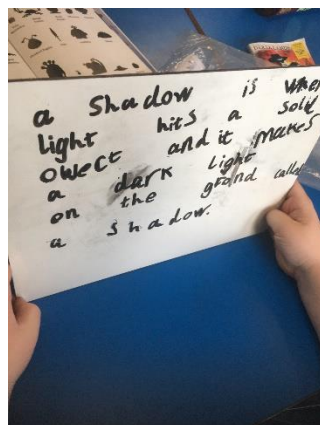 a Shadow is when
light hits a solid
owect and it makes
a dark light
on the grand called
a shadow.